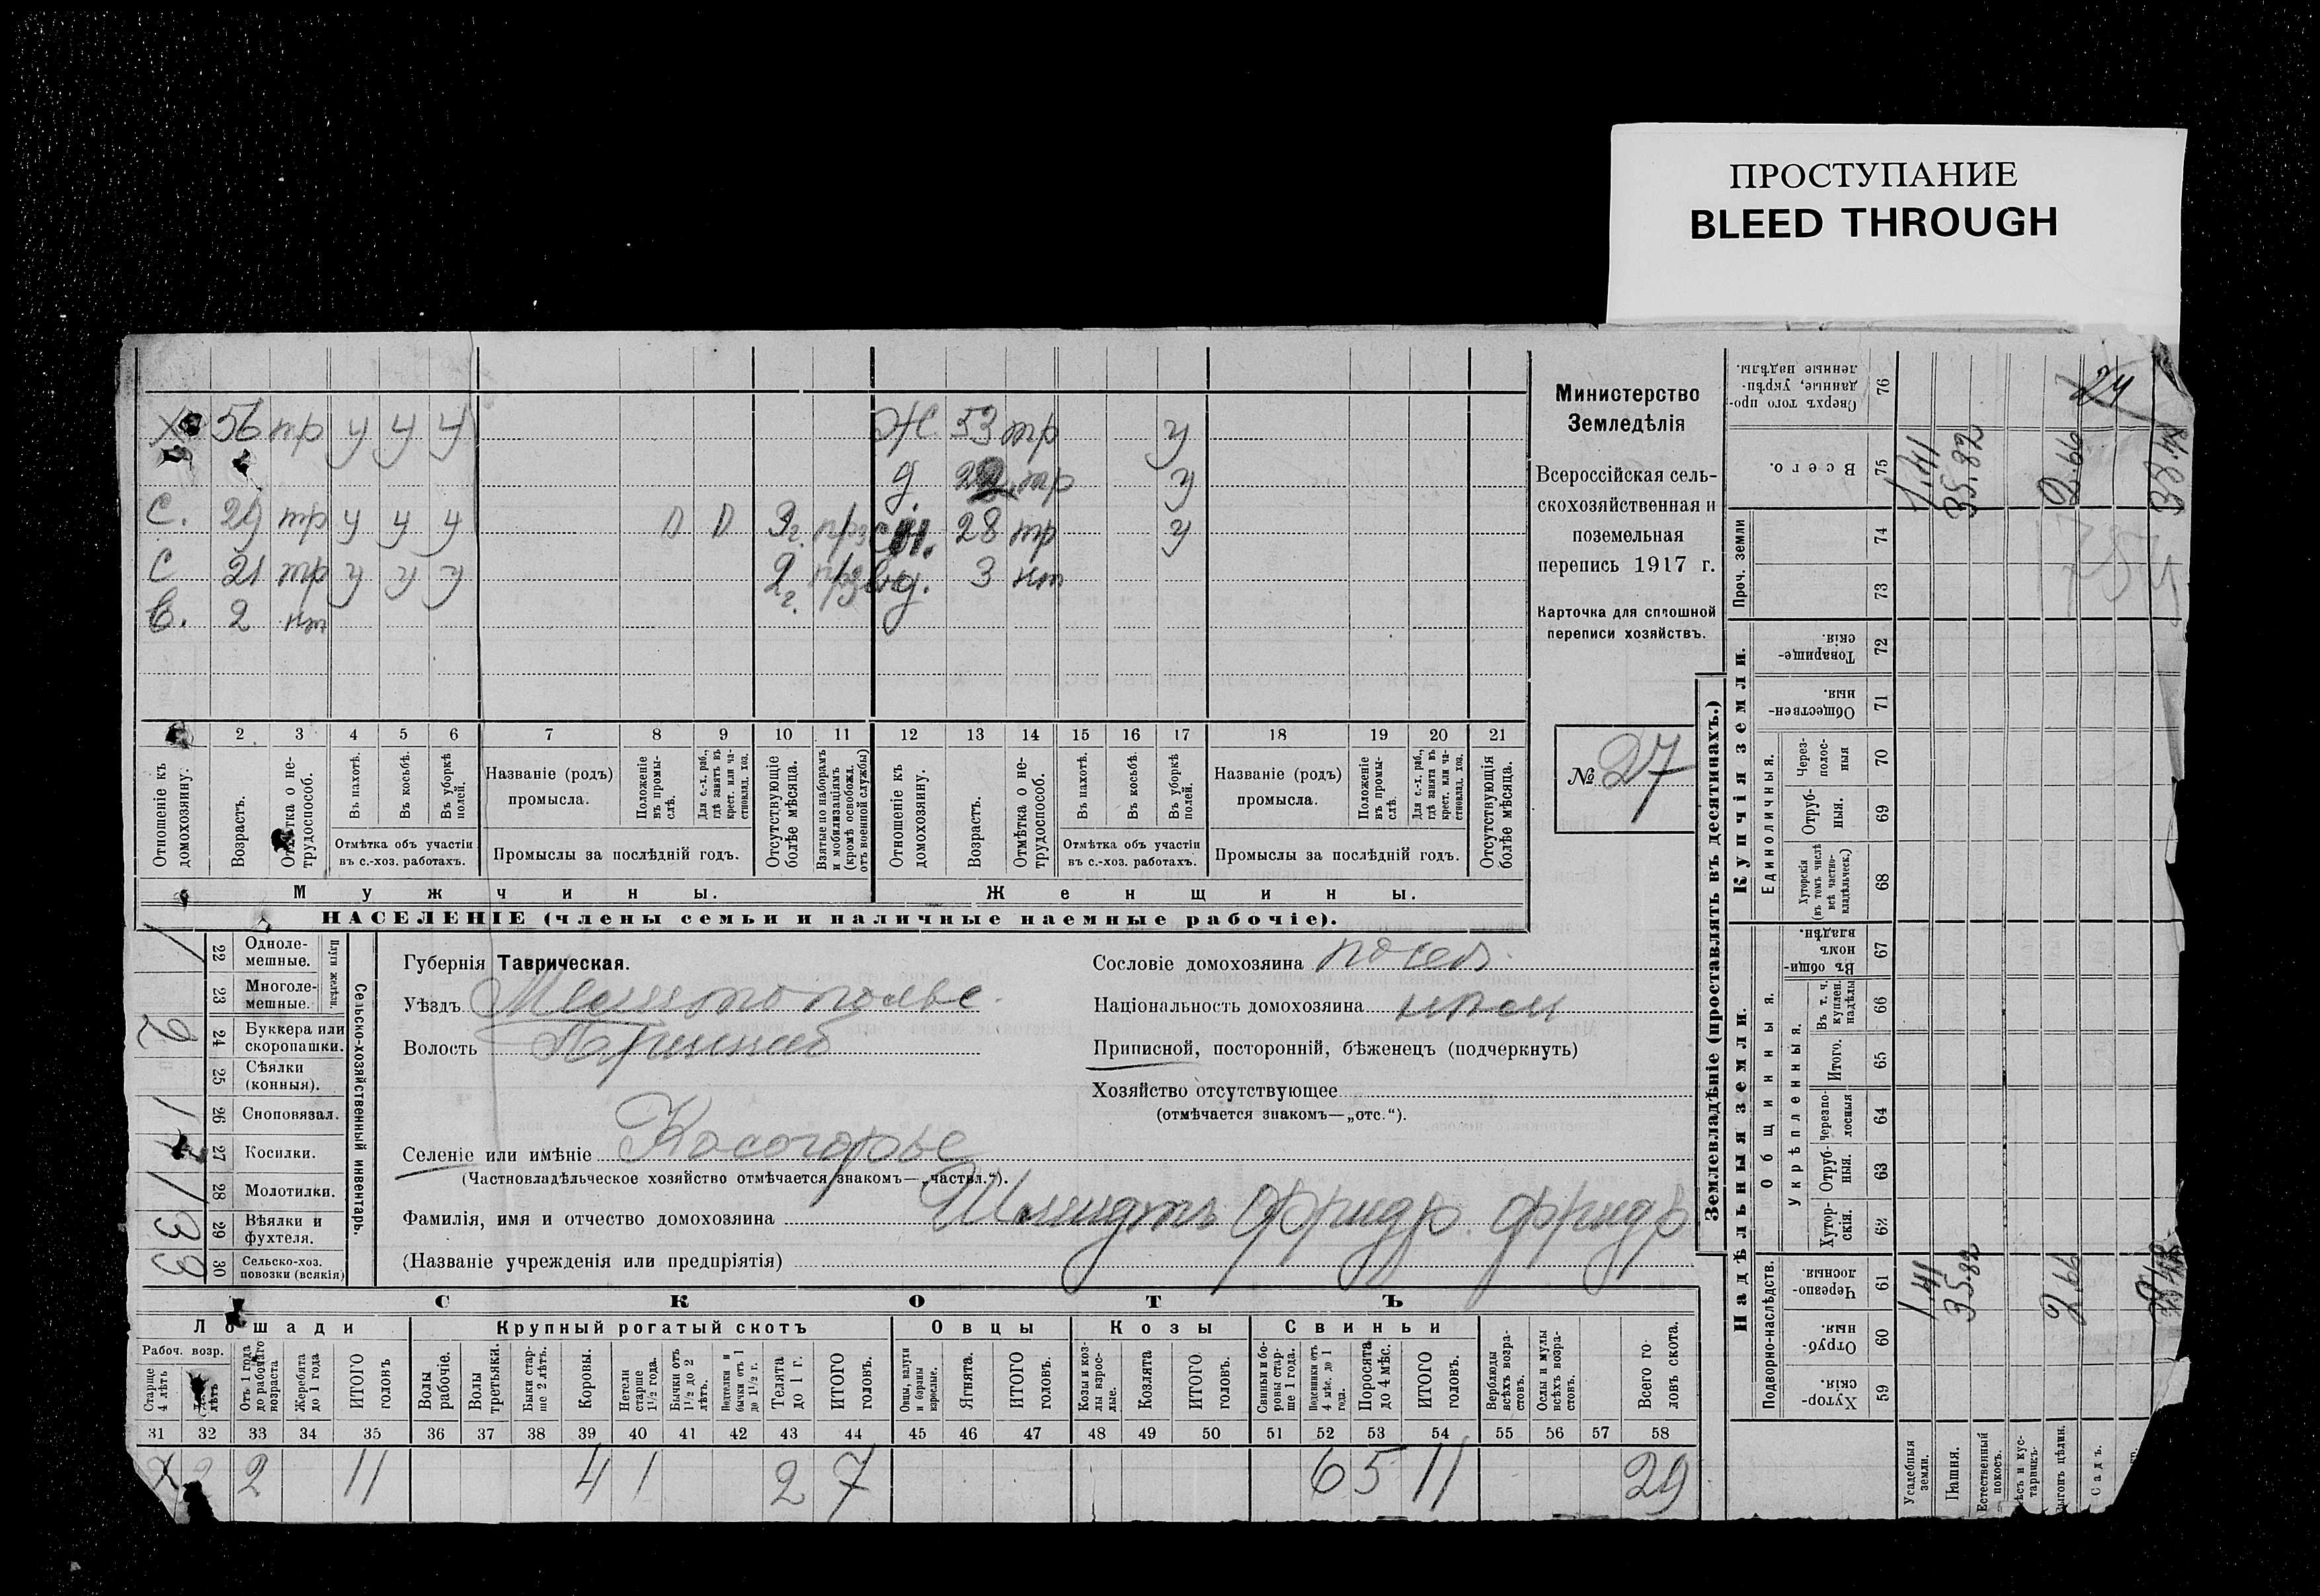 ПРОСТУПАНИЕ
BLEED THROUGH
Министерство
Земледѣлія
Всероссійская сель-
скохозяйственная и
поземельная
перепись 1917 г.
Карточка для сплошной
переписи хозяйствъ.
№ 27
Х. 56 тр у у у Ж 53 тр у
д. тр у
С. 29 тр у у у П П 3 г. 28 тр у
С 21 тр у у у 2 г. 3 нт
В. 2 нт
2 3 4 5 6 7 8 9 10 11 12 13 14 15 16 17 18 19 20 21
Отношеніе къ домохозяину.
Возрастъ.
Отмѣтка о не-трудоспособ.
Въ пахотѣ.
Въ косьбѣ.
Въ уборкѣ полей.
Отмѣтка объ участіи въ с.-хоз. работахъ.
Названіе (родъ) промысла.
Положеніе въ промы-слѣ.
Для с.-х. раб., гдѣ занятъ въ крест. или ча-стновлад. хоз.
Промыслы за послѣдній годъ.
Отсутствующіе болѣе мѣсяца.
Взятые по наборамъ и мобилизаціямъ (кромѣ освобожд. отъ военной службы)
Отношеніе къ домохозяину.
Возрастъ.
Отмѣтка о не-трудоспособ.
Въ пахотѣ.
Въ косьбѣ.
Въ уборкѣ полей.
Отмѣтка объ участіи въ с.-хоз. работахъ.
Названіе (родъ) промысла.
Положеніе въ промы-слѣ.
Для с.-х. раб., гдѣ занята въ крест. или ча-стновлад. хоз.
Промыслы за послѣдній годъ.
Отсутствующія болѣе мѣсяца.
Мужчины. Женщины.
НАСЕЛЕНІЕ (члены семьи и наличные наемные рабочіе).
Сельско-хозяйственный инвентарь.
Плуги желѣзн.
1 22 Одноле-мешные.
23 Многоле-мешные.
2 24 Буккера или скоропашки.
25 Сѣялки (конныя).
1 26 Сноповязал.
27 Косилки.
1 28 Молотилки.
3 29 Вѣялки и фухтеля.
3 30 Сельско-хоз. повозки (всякія)
Губернія Таврическая.
Уѣздъ
Волость
Селеніе или имѣніе Косогорье
(Частновладѣльческое хозяйство отмѣчается знакомъ—„частвл.“).
Фамилія, имя и отчество домохозяина Шмидтъ Фридр. Фридр
(Названіе учрежденія или предпріятія)
Сословіе домохозяина посел.
Національность домохозяина
Приписной, посторонній, бѣженецъ (подчеркнуть)
Хозяйство отсутствующее
(отмѣчается знакомъ—„отс.“).
СКОТЪ
Лошади Крупный рогатый скотъ Овцы Козы Свиньи
Рабоч. возр.
Старше 4 лѣтъ
лѣтъ
Отъ 1 года до рабочаго возраста
Жеребята до 1 года
ИТОГО головъ
Волы рабочіе.
Волы третьяки.
Быки стар-ше 2 лѣтъ.
Коровы.
Нетели старше 1½ года.
Бычки отъ 1½ до 2 лѣтъ.
Подтелки и бычки отъ 1 до 1½ г.
Телята до 1 г.
ИТОГО головъ.
Овцы, валухи и бараны взрослые.
Ягнята.
ИТОГО головъ.
Козы и коз-лы взрос-лые.
Козлята
ИТОГО головъ.
Свиньи и бо-ровы стар-ше 1 года.
Подсвинки отъ 4 мѣс. до 1 года.
Поросята до 4 мѣс.
ИТОГО головъ.
Верблюды всѣхъ возра-стовъ.
Ослы и мулы всѣхъ возра-стовъ.
Всего го-ловъ скота.
31 32 33 34 35 36 37 38 39 40 41 42 43 44 45 46 47 48 49 50 51 52 53 54 55 56 57 58
2 11 4 1 2 7 6 5 11 29
Землевладѣніе (проставлять въ десятинахъ.)
Надѣльныя земли. Купчія земли.
Подворно-наслѣдств.
Общинныя.
Укрѣпленныя.
Единоличныя.
Проч. земли
59 Хутор-скія
60 Отруб-ныя.
61 Черезпо-лосныя.
62 Хутор-скія.
63 Отруб-ныя.
64 черезпо-лосныя
65 Итого.
66 Въ т. ч. куплен. надѣлы
67 Въ общин-номъ владѣн.
68 Хуторскія (въ томъ числѣ всѣ частно-владѣльческ.)
69 Отруб-ныя.
70 Через-полос-ныя
71 Обществен-ныя.
72 Товарище-скія.
73
74
75 Всего.
76 Сверхъ того про-данные, укрѣп-ленные надѣлы.
Усадебныя земли. 1,41 1,41
Пашня. 35.82 35.82
Естественный покосъ.
лѣсъ и кус-тарникъ.
Выгонъ цѣлин.
Садъ.
24